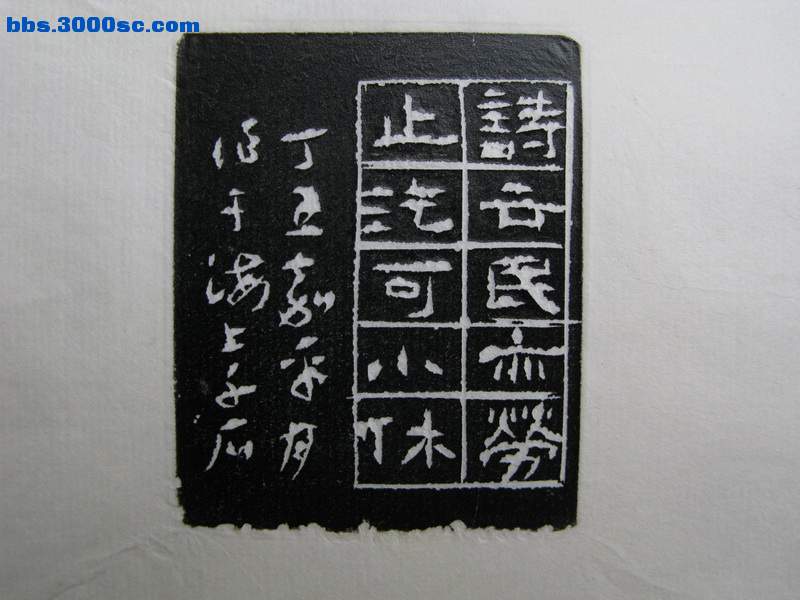 bbs.3000sc.com
詩云民亦勞
止汔可小休
丁丑嘉平月
作于海上子石